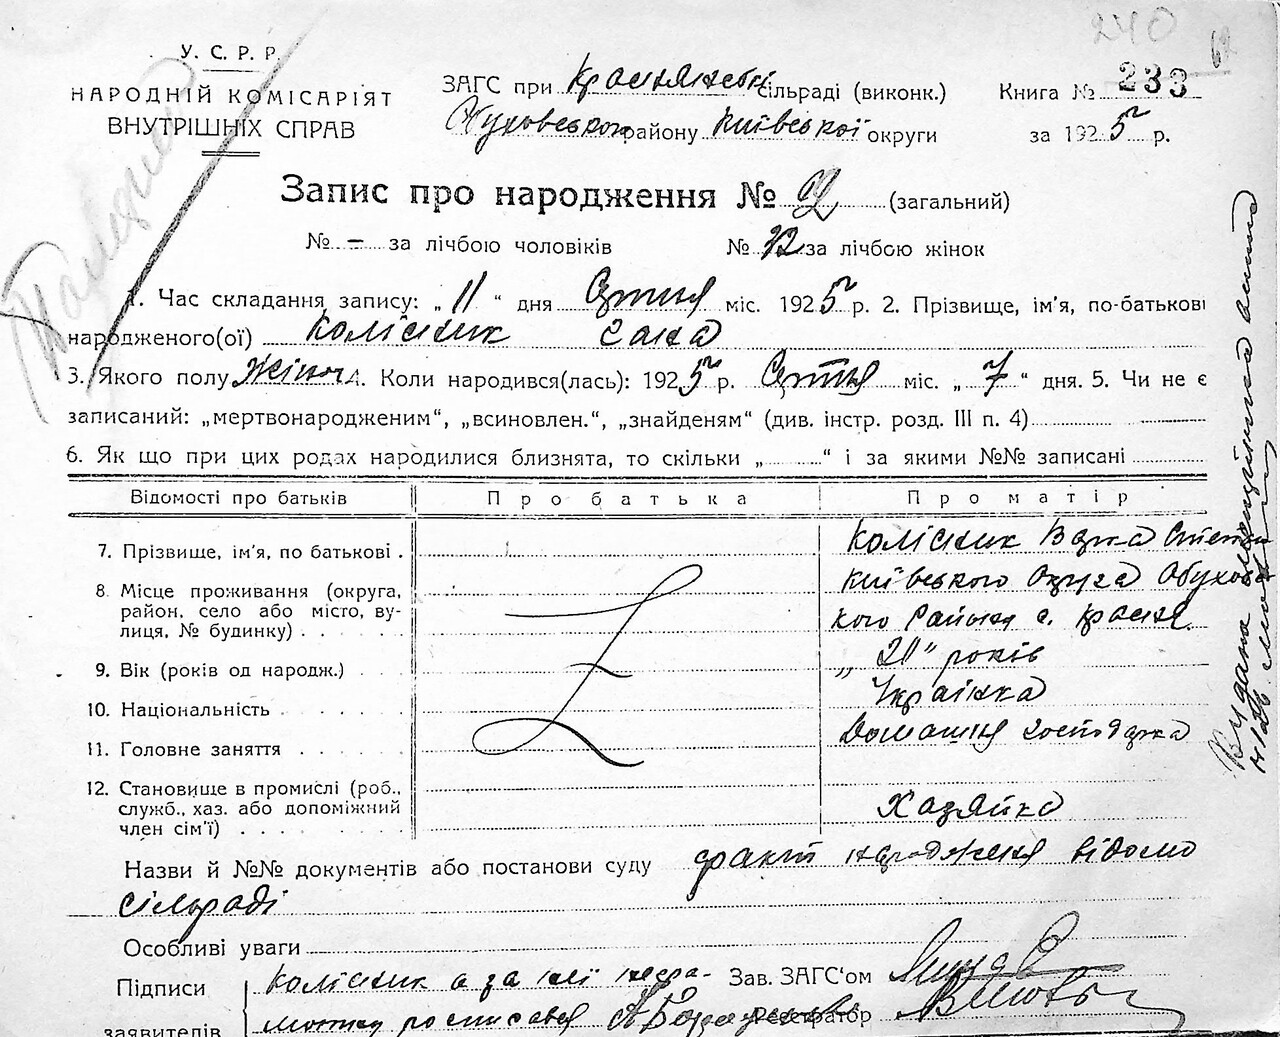 240
62
У. С. Р. Р.
НАРОДНІЙ КОМІСАРІЯТ
ВНУТРІШНІХ СПРАВ
ЗАГС при Краснянській сільраді (виконк.)
Обуховського району Київської округи
Книга № 233
за 1925 р.
Запис про народження № (загальний)
№ – за лічбою чоловіків № за лічбою жінок
1. Час складання запису: „11“ дня міс. 1925 р. 2. Прізвище, ім'я, по-батькові
народженого(ої) Колісник
3. Якого полу Жіноч 4. Коли народився(лась): 1925 р. міс. „7“ дня. 5. Чи не є
записаний: „мертвонародженим“, „всиновлен.“, „знайденям“ (див. інстр. розд. III п. 4)
6. Як що при цих родах народилися близнята, то скільки „ “ і за якими №№ записані
Відомості про батьків Про батька Про матір
7. Прізвище, ім'я, по батькові . Колісник
8. Місце проживання (округа, Київського Округа Обуховс
район, село або місто, ву- кого Району с. Красне
лиця, № будинку) . . .
9. Вік (років од народж.) . . . „20“ років
10. Національність . . . Українка
11. Головне заняття . . . Домашня господарка
12. Становище в промислі (роб.,
служб., хаз. або допоміжний Хазяйка
член сім'ї) . . .
Назви й №№ документів або постанови суду факт народження відомо
сільраді
Особливі уваги
Підписи Колісник а за неї негра- Зав. ЗАГС'ом
заявителів мотну росписався Реєстратор